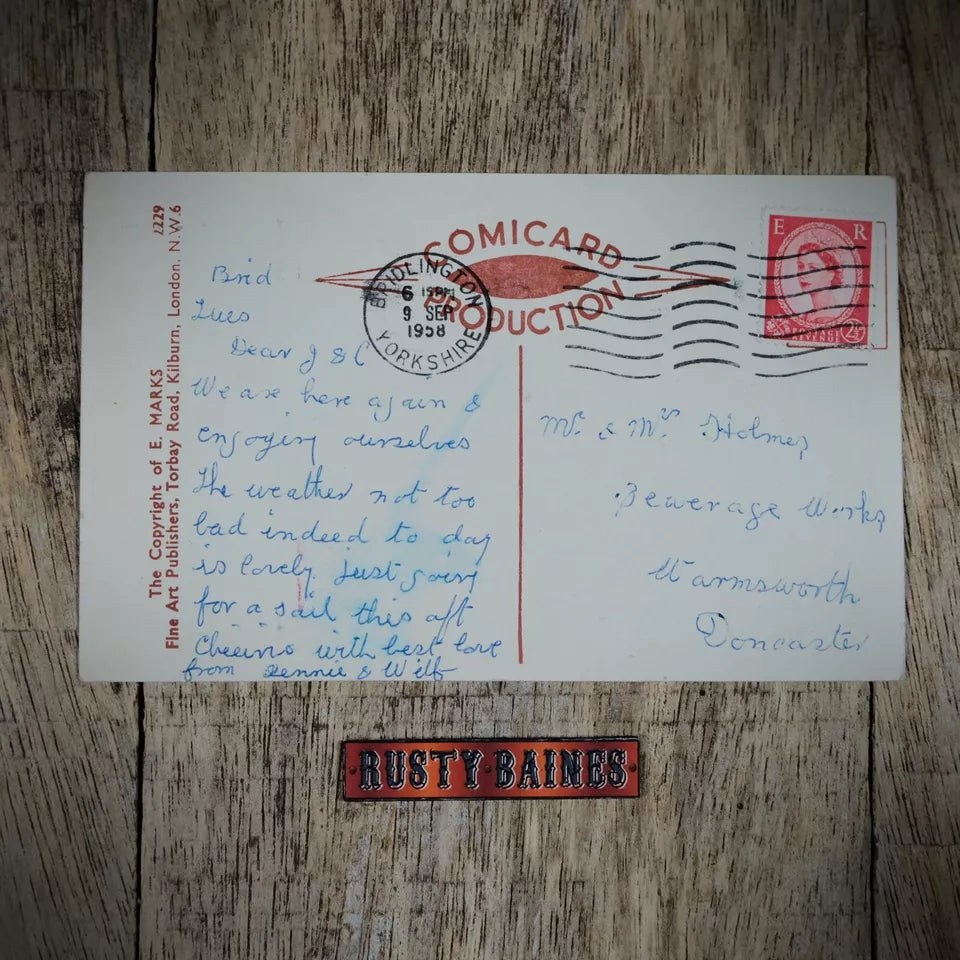 COMICARD
PRODUCTION
BRIDLINGTON
6
9 SEP
1958
YORKSHIRE
E R
POSTAGE
REVENUE
The Copyright of E. MARKS
Fine Art Publishers, Torbay Road, Kilburn, London. N.W.6
1229
Brid
Tues
Dear J & C
We are here again &
enjoying ourselves
The weather not too
bad indeed to day
is lovely just going
for a sail this aft
Cheerio with best love
from & Wilf
Mr. & Mrs Holmes
Sewerage Works
Warmsworth
Doncaster
RUSTY·BAINES